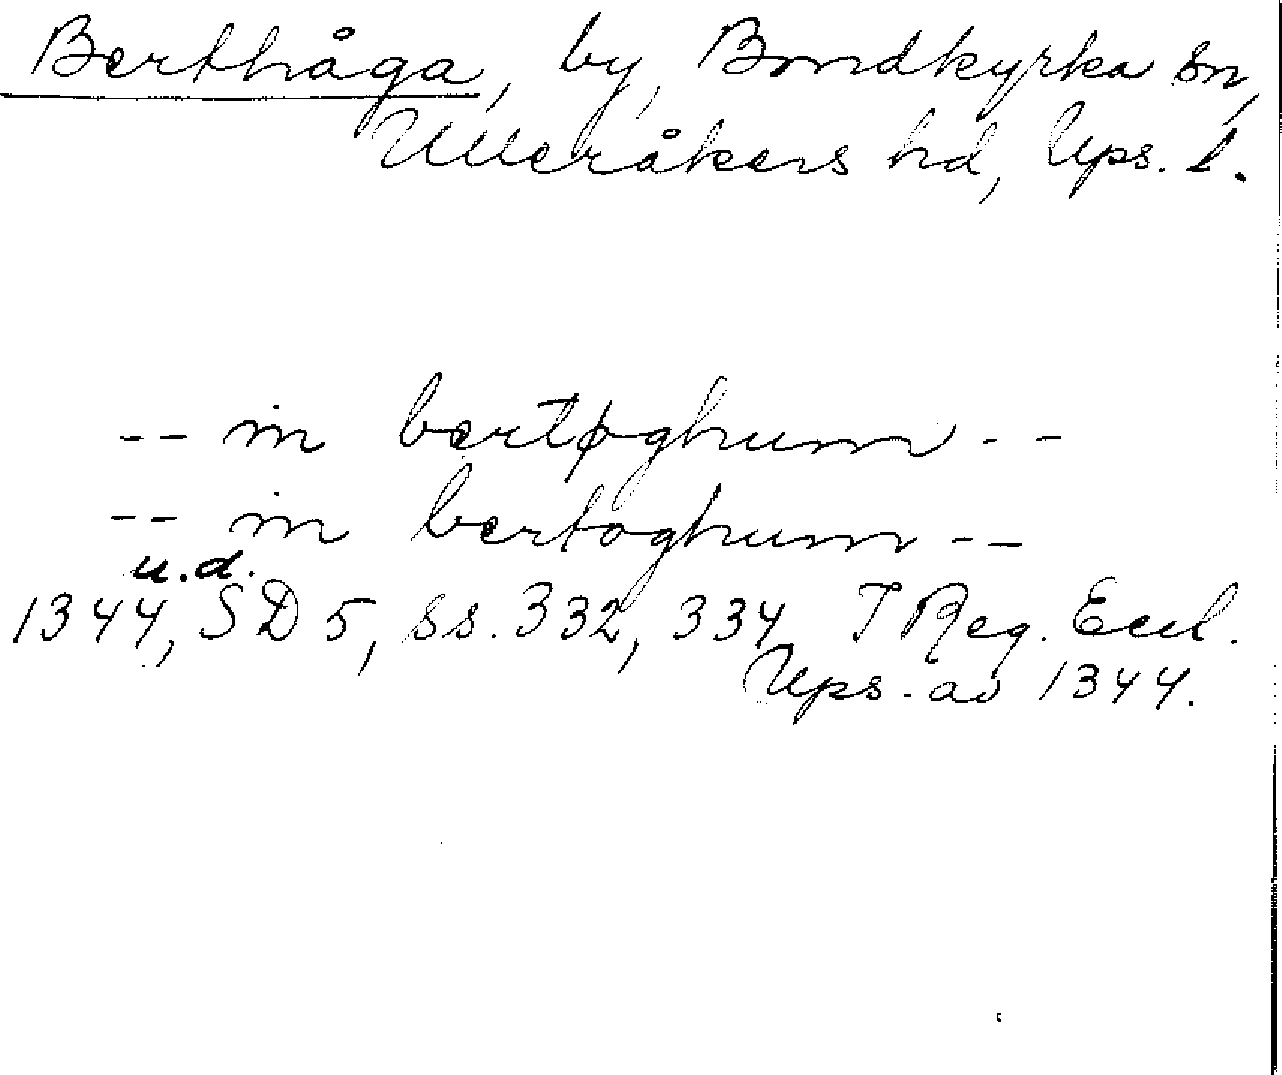 Berthåga, by, Bondkyrka sn,
Ulleråkers hd, Ups. l.
-- in bertøghum --
-- in bertoghum --
u.d.
1344, SD 5, ss. 332, 334 I Reg. Eccl.
Ups. av 1344.